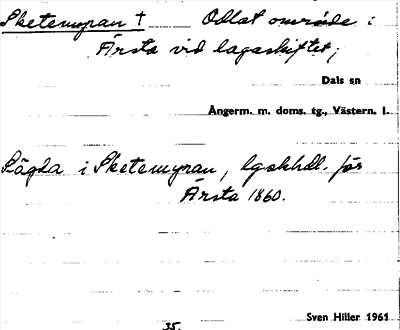 Sketemyran † Odlat område i
Ärsta vid lagaskiftet;
Dals sn
Ångerm. m. doms. tg., Västern. l.
Lägda i Sketemyran, lgskhdl. för
Ärsta 1860.
Sven Hiller 1961
35.